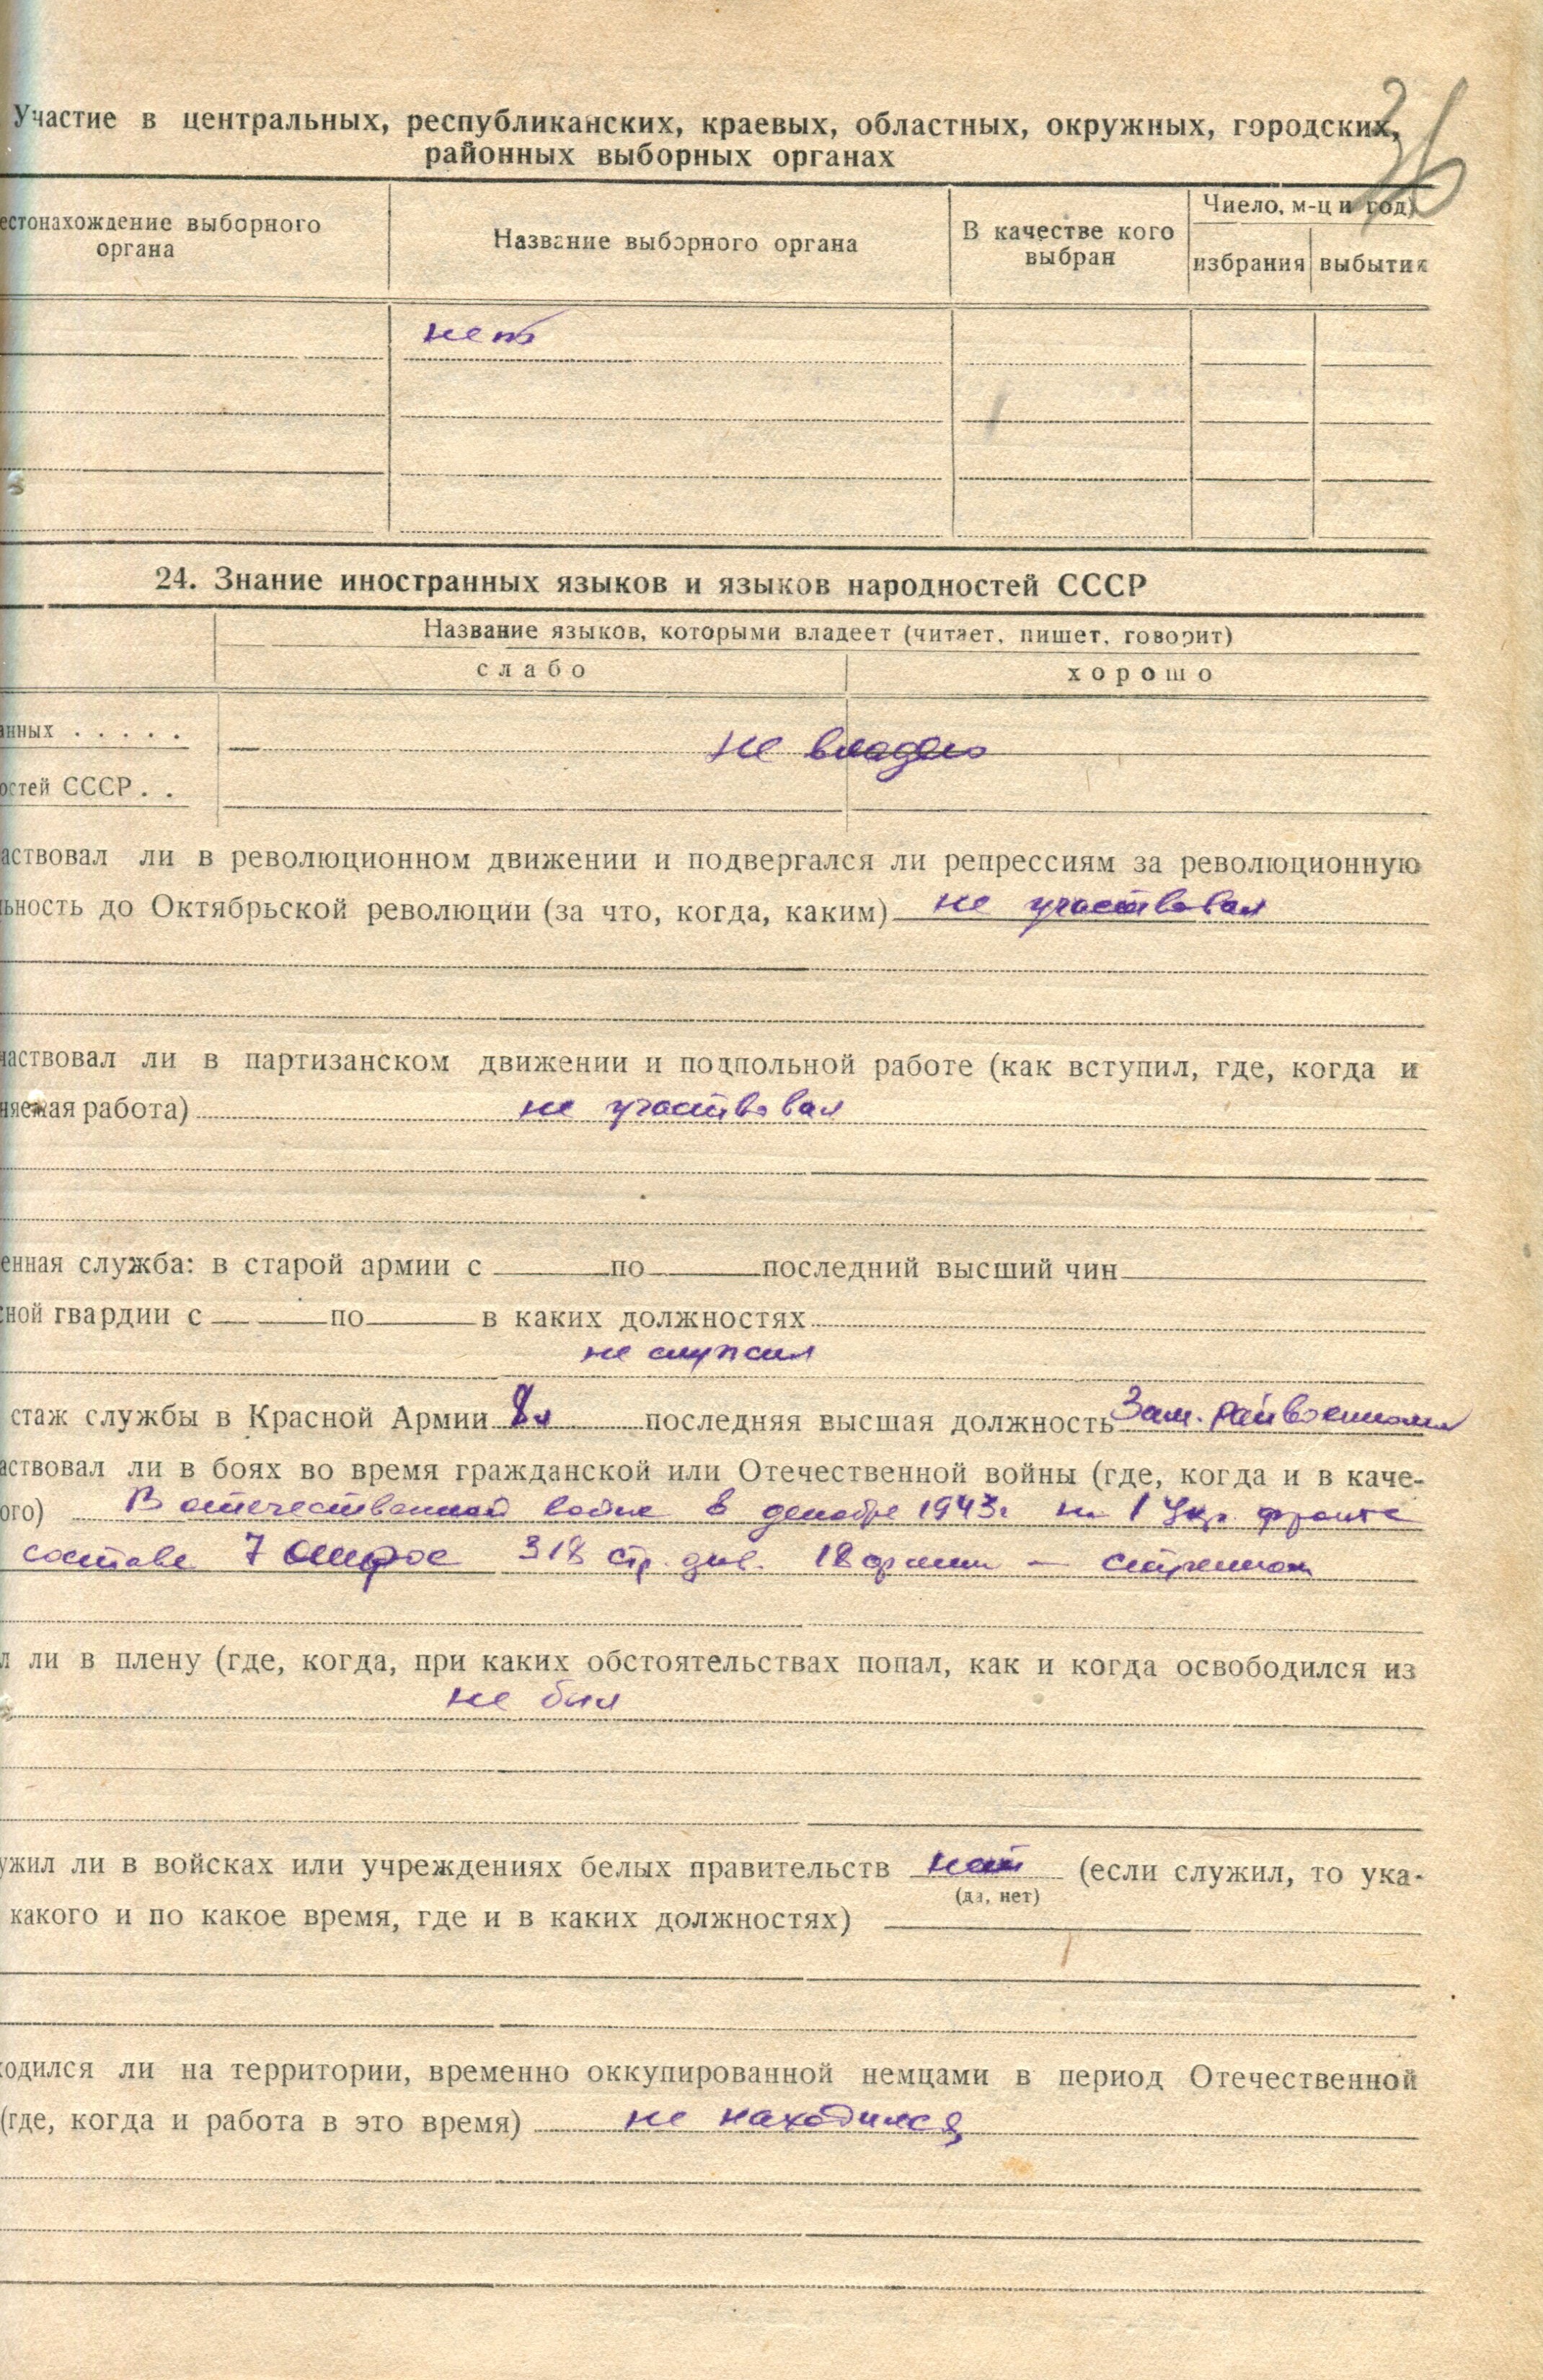 36
Участие в центральных, республиканских, краевых, областных, окружных, городских,
районных выборных органах
естонахождение выборного
органа
Название выборного органа
В качестве кого
выбран
Число, м-ц и год
избрания
выбытия
нет
24. Знание иностранных языков и языков народностей СССР
Название языков, которыми владеет (читает, пишет, говорит)
слабо
хорошо
нных . . . . .
не владею
остей СССР . .
аствовал ли в революционном движении и подвергался ли репрессиям за революционную
ьность до Октябрьской революции (за что, когда, каким) не участвовал
частвовал ли в партизанском движении и подпольной работе (как вступил, где, когда и
няемая работа) не участвовал
енная служба: в старой армии с по последний высший чин
сной гвардии с по в каких должностях
не служил
стаж службы в Красной Армии последняя высшая должность Зам. райвоенкома
аствовал ли в боях во время гражданской или Отечественной войны (где, когда и в каче-
ого) В отечественной войне в декабре 1943г на 1 Укр. фронте
составе 7 318 стр. див. 18 армии —
л ли в плену (где, когда, при каких обстоятельствах попал, как и когда освободился из
не был
ужил ли в войсках или учреждениях белых правительств нет (если служил, то ука-
(да, нет)
какого и по какое время, где и в каких должностях)
ходился ли на территории, временно оккупированной немцами в период Отечественной
(где, когда и работа в это время) не находился